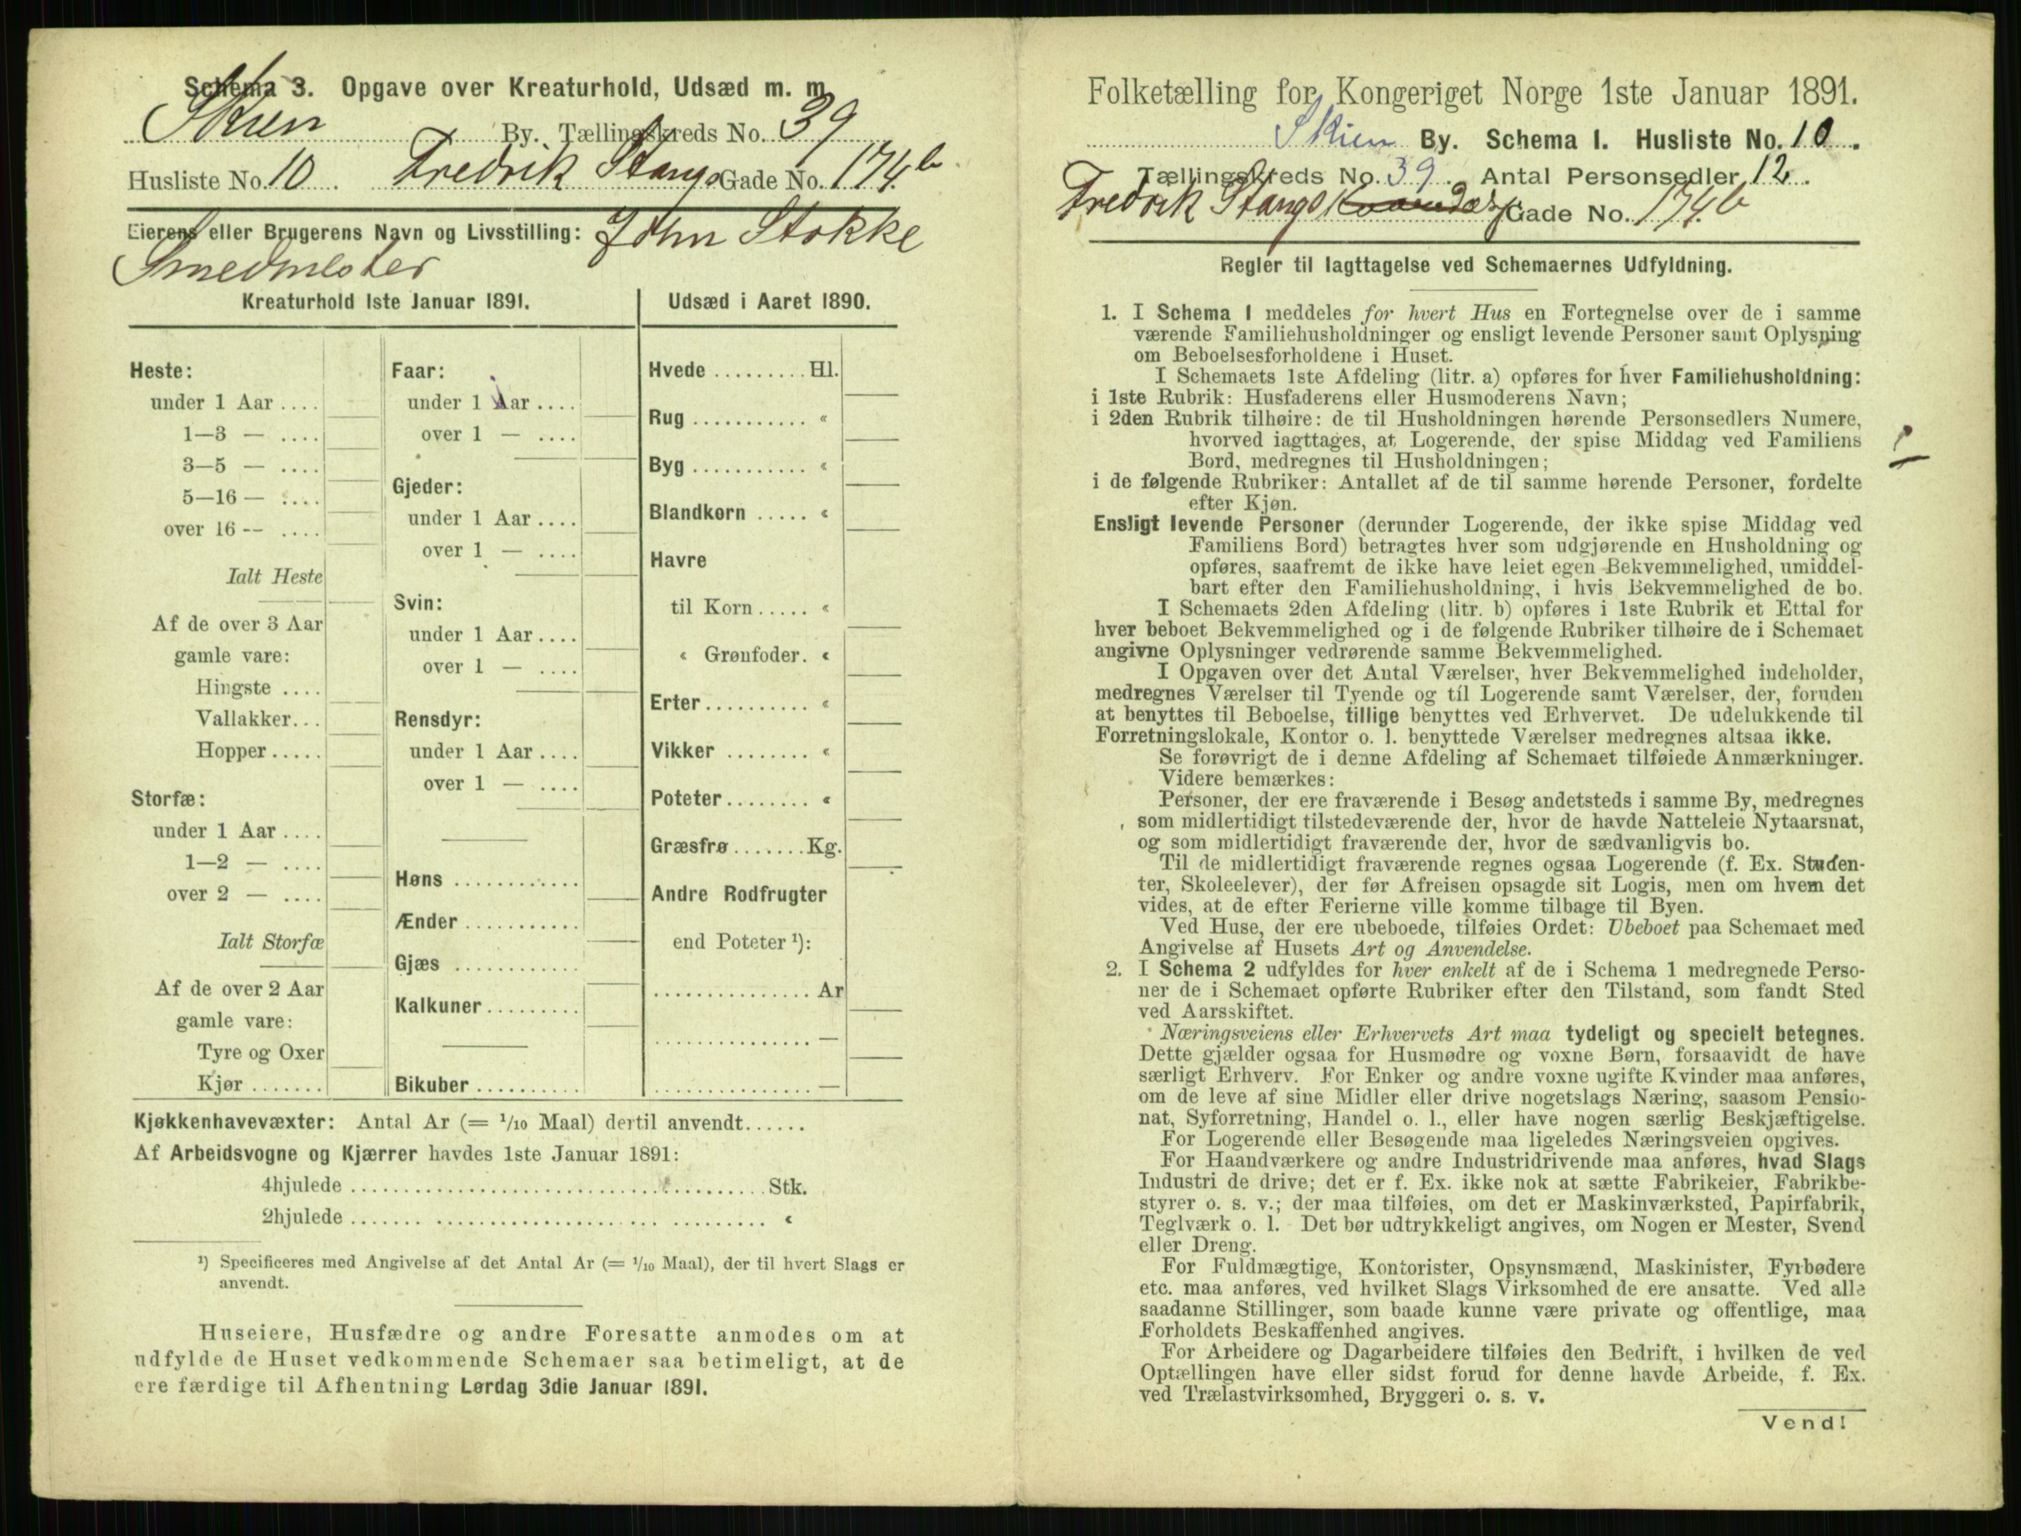 Schema 3. Opgave over Kreaturhold, Udsæd m. m.
Skien By. Tællingskreds No. 39
Husliste No. 10. Fredrik Stangs Gade No. 174b
Eierens eller Brugerens Navn og Livsstilling: John Stokke
Smedmester
Kreaturhold 1ste Januar 1891.
Heste:
under 1 Aar ....
1—3 — ....
3—5 — ....
5—16 — ....
over 16 -- ....
Ialt Heste
Af de over 3 Aar
gamle vare:
Hingste ....
Vallakker...
Hopper .....
Storfæ:
under 1 Aar ....
1—2 — ....
over 2 — ....
Ialt Storfæ
Af de over 2 Aar
gamle vare:
Tyre og Oxer
Kjør .......
Faar:
under 1 Aar ....
over 1 — ....
Gjeder:
under 1 Aar ....
over 1 — ....
Svin:
under 1 Aar ....
over 1 — ....
Rensdyr:
under 1 Aar ....
over 1 — ....
Høns ............
Ænder ...........
Gjæs ............
Kalkuner .........
Bikuber ..........
Udsæd i Aaret 1890.
Hvede ......... Hl.
Rug ........... «
Byg ........... «
Blandkorn ..... «
Havre
til Korn ..... «
« Grønfoder. «
Erter .......... «
Vikker ........ «
Poteter ........ «
Græsfrø ....... Kg.
Andre Rodfrugter
end Poteter ¹):
............... Ar
............... —
............... —
Kjøkkenhavevæxter: Antal Ar (= 1/10 Maal) dertil anvendt......
Af Arbeidsvogne og Kjærrer havdes 1ste Januar 1891:
4hjulede ........................................ Stk.
2hjulede ........................................ «
¹) Specificeres med Angivelse af det Antal Ar (= 1/10 Maal), der til hvert Slags er
anvendt.
Huseiere, Husfædre og andre Foresatte anmodes om at
udfylde de Huset vedkommende Schemaer saa betimeligt, at de
ere færdige til Afhentning Lørdag 3die Januar 1891.
Folketælling for Kongeriget Norge 1ste Januar 1891.
Skien By. Schema 1. Husliste No. 10.
Tællingskreds No. 39. Antal Personsedler 12.
Fredrik Stangs Gade No. 174b
Regler til Iagttagelse ved Schemaernes Udfyldning.
1. I Schema 1 meddeles for hvert Hus en Fortegnelse over de i samme
værende Familiehusholdninger og ensligt levende Personer samt Oplysning
om Beboelsesforholdene i Huset.
I Schemaets 1ste Afdeling (litr. a) opføres for hver Familiehusholdning:
i 1ste Rubrik: Husfaderens eller Husmoderens Navn;
i 2den Rubrik tilhøire: de til Husholdningen hørende Personsedlers Numere,
hvorved iagttages, at Logerende, der spise Middag ved Familiens
Bord, medregnes til Husholdningen;
i de følgende Rubriker: Antallet af de til samme hørende Personer, fordelte
efter Kjøn.
Ensligt levende Personer (derunder Logerende, der ikke spise Middag ved
Familiens Bord) betragtes hver som udgjørende en Husholdning og
opføres, saafremt de ikke have leiet egen Bekvemmelighed, umiddel-
bart efter den Familiehusholdning, i hvis Bekvemmelighed de bo.
I Schemaets 2den Afdeling (litr. b) opføres i 1ste Rubrik et Ettal for
hver beboet Bekvemmelighed og i de følgende Rubriker tilhøire de i Schemaet
angivne Oplysninger vedrørende samme Bekvemmelighed.
I Opgaven over det Antal Værelser, hver Bekvemmelighed indeholder,
medregnes Værelser til Tyende og til Logerende samt Værelser, der, foruden
at benyttes til Beboelse, tillige benyttes ved Erhvervet. De udelukkende til
Forretningslokale, Kontor o. l. benyttede Værelser medregnes altsaa ikke.
Se forøvrigt de i denne Afdeling af Schemaet tilføiede Anmærkninger.
Videre bemærkes:
Personer, der ere fraværende i Besøg andetsteds i samme By, medregnes
som midlertidigt tilstedeværende der, hvor de havde Natteleie Nytaarsnat,
og som midlertidigt fraværende der, hvor de sædvanligvis bo.
Til de midlertidigt fraværende regnes ogsaa Logerende (f. Ex. Studen-
ter, Skoleelever), der før Afreisen opsagde sit Logis, men om hvem det
vides, at de efter Ferierne ville komme tilbage til Byen.
Ved Huse, der ere ubeboede, tilføies Ordet: Ubeboet paa Schemaet med
Angivelse af Husets Art og Anvendelse.
2. I Schema 2 udfyldes for hver enkelt af de i Schema 1 medregnede Perso-
ner de i Schemaet opførte Rubriker efter den Tilstand, som fandt Sted
ved Aarsskiftet.
Næringsveiens eller Erhvervets Art maa tydeligt og specielt betegnes.
Dette gjælder ogsaa for Husmødre og voxne Børn, forsaavidt de have
særligt Erhverv. For Enker og andre voxne ugifte Kvinder maa anføres,
om de leve af sine Midler eller drive nogetslags Næring, saasom Pensio-
nat, Syforretning, Handel o. l., eller have nogen særlig Beskjæftigelse.
For Logerende eller Besøgende maa ligeledes Næringsveien opgives.
For Haandværkere og andre Industridrivende maa anføres, hvad Slags
Industri de drive; det er f. Ex. ikke nok at sætte Fabrikeier, Fabrikbe-
styrer o. s. v.; der maa tilføies, om det er Maskinværksted, Papirfabrik,
Teglværk o. l. Det bør udtrykkeligt angives, om Nogen er Mester, Svend
eller Dreng.
For Fuldmægtige, Kontorister, Opsynsmænd, Maskinister, Fyrbødere
etc. maa anføres, ved hvilket Slags Virksomhed de ere ansatte. Ved alle
saadanne Stillinger, som baade kunne være private og offentlige, maa
Forholdets Beskaffenhed angives.
For Arbeidere og Dagarbeidere tilføies den Bedrift, i hvilken de ved
Optællingen have eller sidst forud for denne havde Arbeide, f. Ex.
ved Trælastvirksomhed, Bryggeri o. s. v.
Vend!